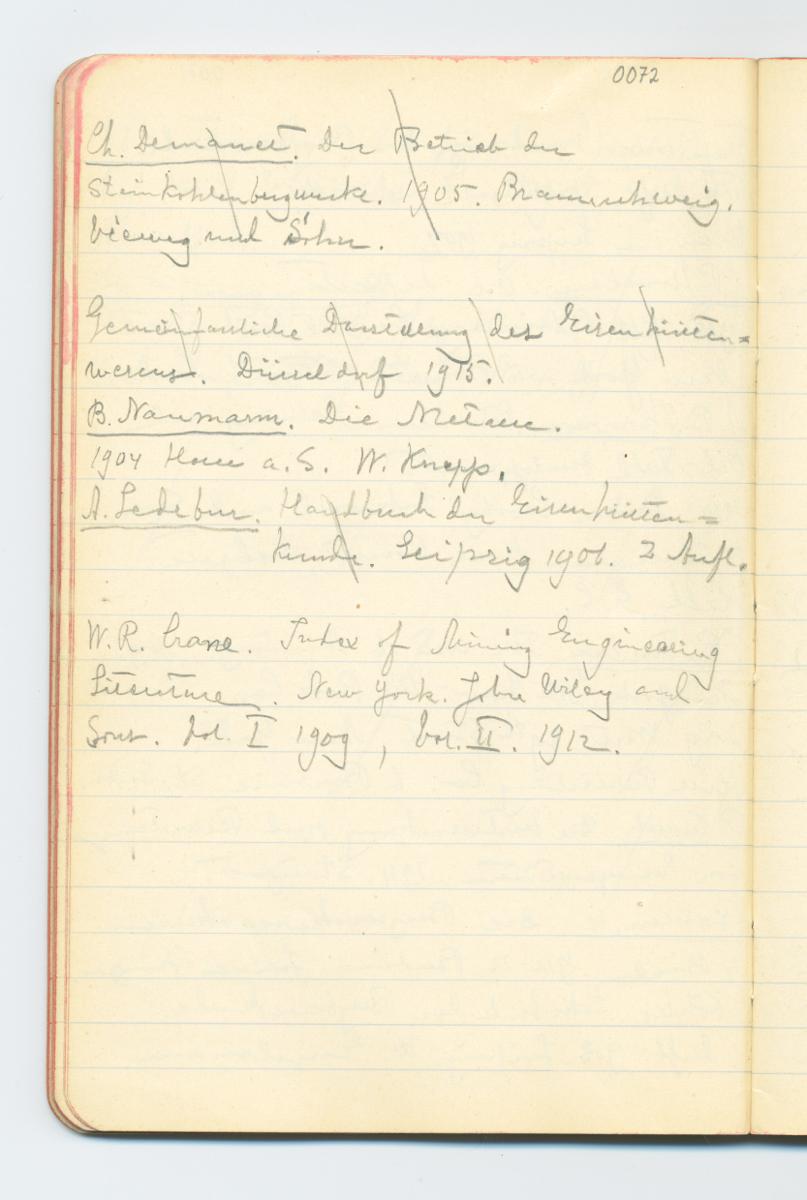 0072
Ch. Demanet. Der Betrieb der
Steinkohlenbergwerke. 1905. Braunschweig.
Vieweg und Sohn.
Gemeinfassliche Darstellung des Eisenhütten=
wesens. Düsseldorf 1915.
B. Naumann. Die Metalle.
1904 Halle a. S. W. Knapp.
A. Ledebur. Handbuch der Eisenhütten=
kunde. Leipzig 1906. 2 Aufl.
W. R. Crane. Index of Mining Engineering
Literature. New York. John Wiley and
Sons. Vol. I 1909, Vol. II. 1912.